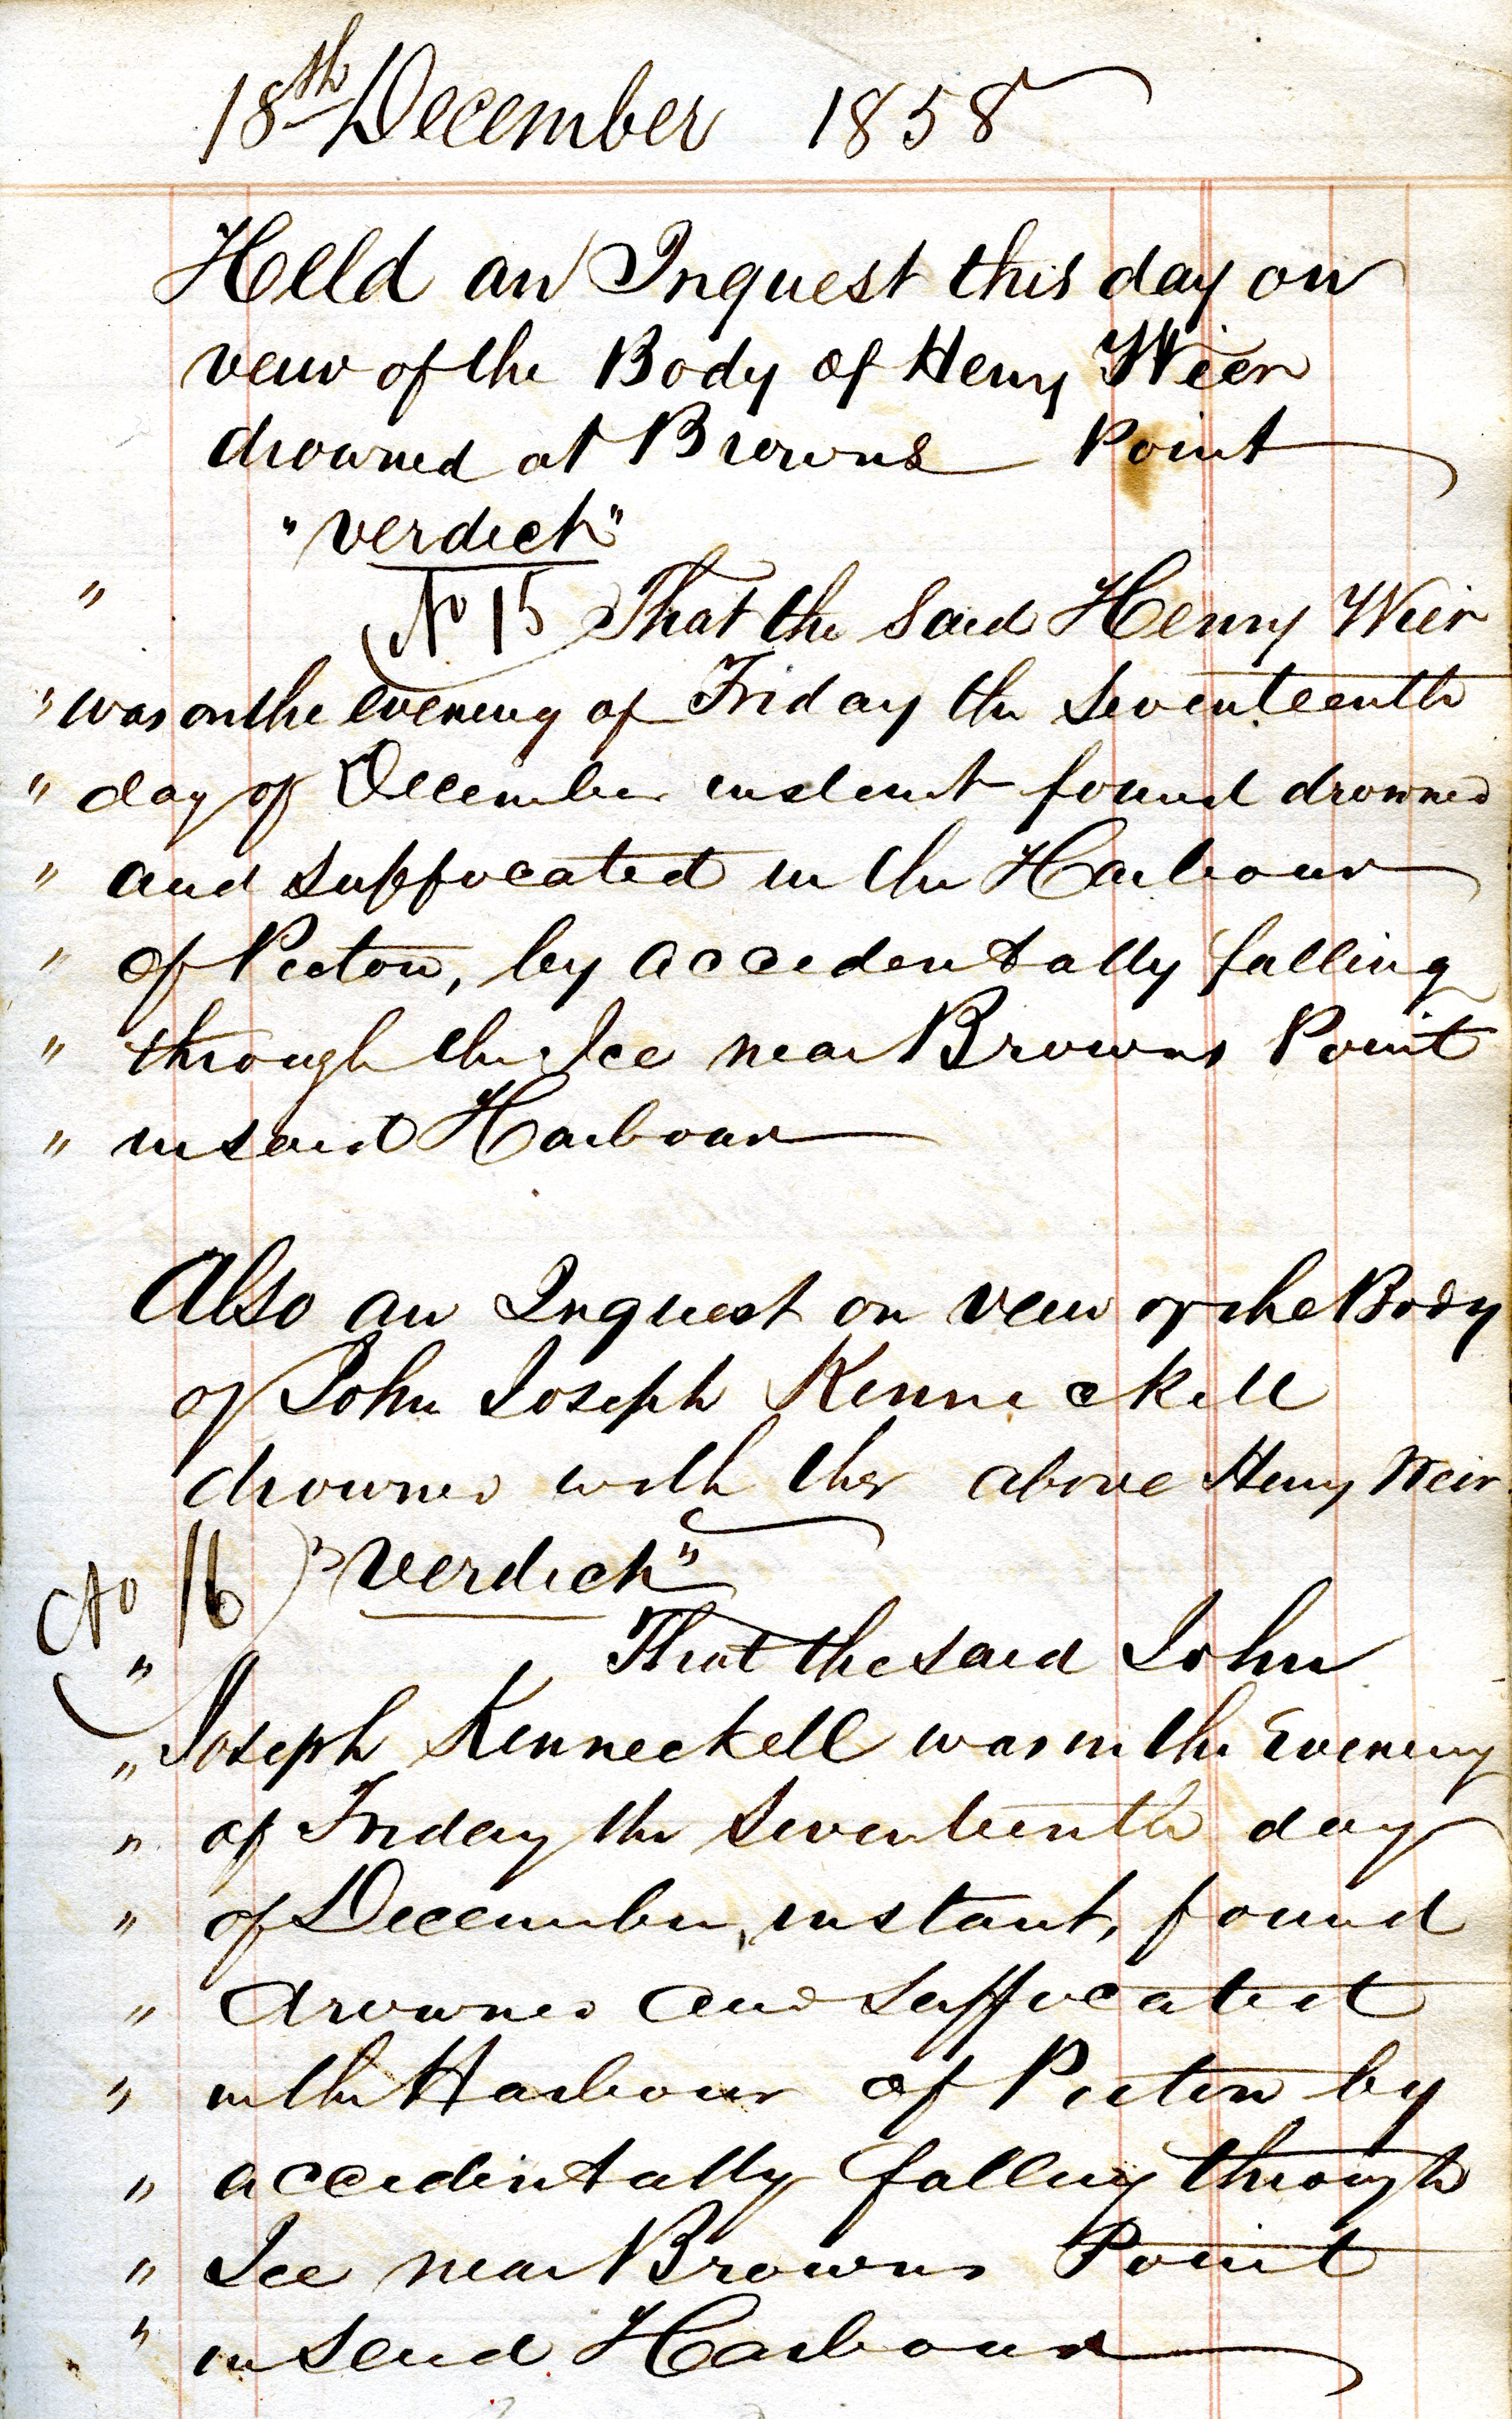 18th December 1858
Held an Inquest this day on
veuw of the Body of Henry Weir
drowned at Browns Point
"verdict"
" No 15 That the said Henry Weir
" was on the evening of Friday the Seventeenth
" day of December instant found drowned
" and suffocated in the Harbour
" of Pictou, by accedentally falling
" through the Ice near Browns Point
" in said Harbour
Also an Inquest on veuw of the Body
of John Joseph Kenneckell
drowned with the above Henry Weir
No 16 "verdict"
" That the said John
" Joseph Kenneckell was on the Evening
" of Friday the Seventeenth day
" of December, instant, found
" drowned and suffocated
" in the Harbour of Pictou by
" accidentally falling through
" Ice near Browns Point
" in said Harbour